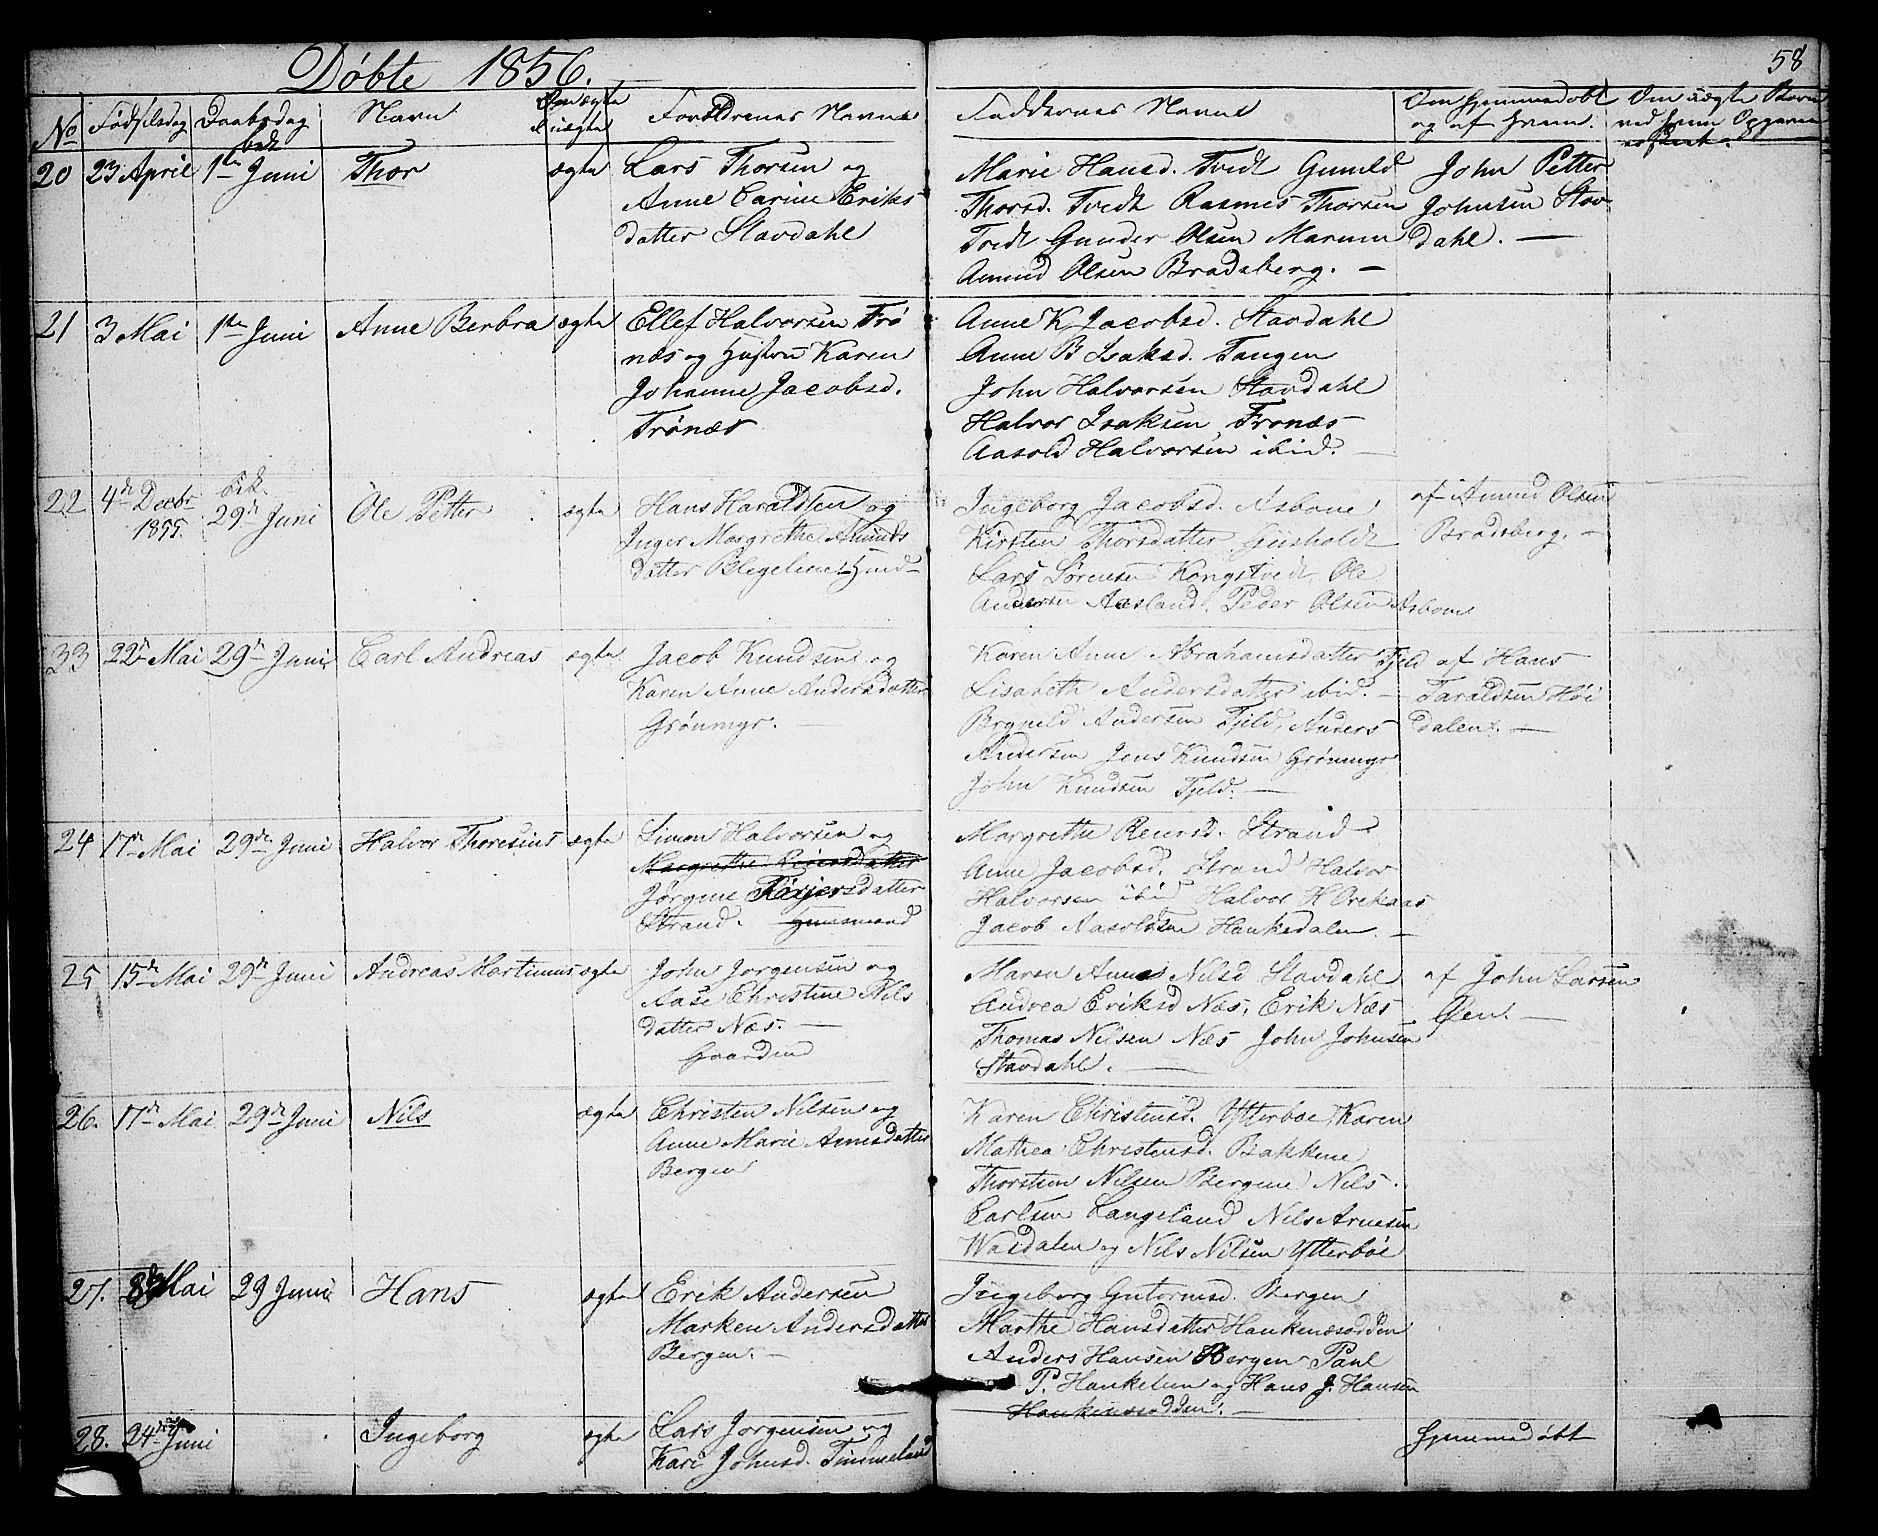 Døbte 1856.
58
No
Fødselsdag
Daabsdag
Navn
Om ægte
uægte
Forældrenes Navne
Faddernes Navne
Om hjemmedøbt
og af hvem.
Om uægte Børn
ved hvem
20
23 April
bek
1ste Juni
Thor
ægte
Lars Thorsen og
Anne Carine Eriks
datter Stavdahl
Marie Hansd. Tvedt Gunild
Thorsd. Tvedt Rasmus Thorsen
Tvedt Gunder Olsen
Amund Olsen Bradsberg. —
John Petter
Johnsen Stav
dahl. —
21
3 Mai
1ste Juni
Anne Berbra
ægte
Ellef Halvorsen Trö
næs og Hustru Karen
Johanne Jacobsd.
Trönæs
Anne K Jacobsd. Stavdahl
Anne B Isaksd. Tangen
John Halvorsen Stavdahl
Halvor Isaksen Tronæs
Aasold Halvorsen ibid.
22
4de Decbr
1855.
bek.
29de Juni
Ole Petter
ægte
Hans Haraldsen og
Inger Margrethe Amunds
datter
Ingeborg Jacobsd. Asbone
Kirsten Thorsdatter
Lars Sörensen Kongstvedt Ole
Andersen Aasland. Peder Olsen Asbone
af Amund Olsen
Bradsberg. —
33
22de Mai
29de Juni
Carl Andreas
ægte
Jacob Knudsen og
Karen Anne Andersdatter
Grönmyr. —
Karen Anne Abrahamsdatter Fjeld
Lisabeth Andersdatter ibid. —
Brynild Andersen Fjeld, Anders
Andersen Jens Knudsen Grönmyr
John Knudsen Fjeld. —
af Hans
Taraldsen Höi
dalen. —
24
17de Mai
29de Juni
Halvor Thoresius
ægte
Simon Halvorsen og
Margrethe
Jörgine Törjersdatter
Strand. Huusmand
Margrethe Reiersd. Strand
Anne Jacobsd. Strand Halvor
Halvorsen ibid Halvor H Orekaas
Jacob Aasoldsen Hankedalen. —
25
15de Mai
29de Juni
Andreas Martinius
ægte
John Jorgensen og
Aase Christine Nils
datter Næs. —
Gaardm
Maren Anne Nilsd Stavdahl
Andrea Eriksd Næs, Erik Næs
Thomas Nilsen Næs John Johnsen
Stavdahl. —
af John Larsen
Øen. —
26.
17de Mai
29de Juni
Nils
ægte
Christen Nilsen og
Anne Marie Arnesdatter
Bergen
Karen Christensd. Ytterböe, Karen
Mathea Christensd. Bakkene
Thorsten Nilsen Bergene Nils
Carlsen Langeland Nils Arnesen
Wasdalen og Nils Nilsen Ytterböe
27.
Mai
29 Juni
Hans
ægte
Erik Andersen
Marken Andersdatter
Bergen. —
Ingeborg Gutormsd. Bergen
Marthe Hansdatter Hankenæsodden
Anders Hansen Bergen Paul
P. og Hans J. Hansen
Hankenæsodden. —
28.
24de Juni
Ingeborg
ægte
Lars Jorgensen og
Kari Johnsd. Timmeland
hjemmedøbt